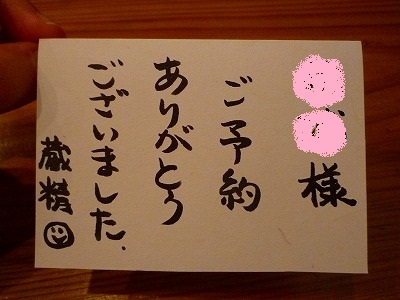 様
ご予約
ありがとう
ございました.
蔵精